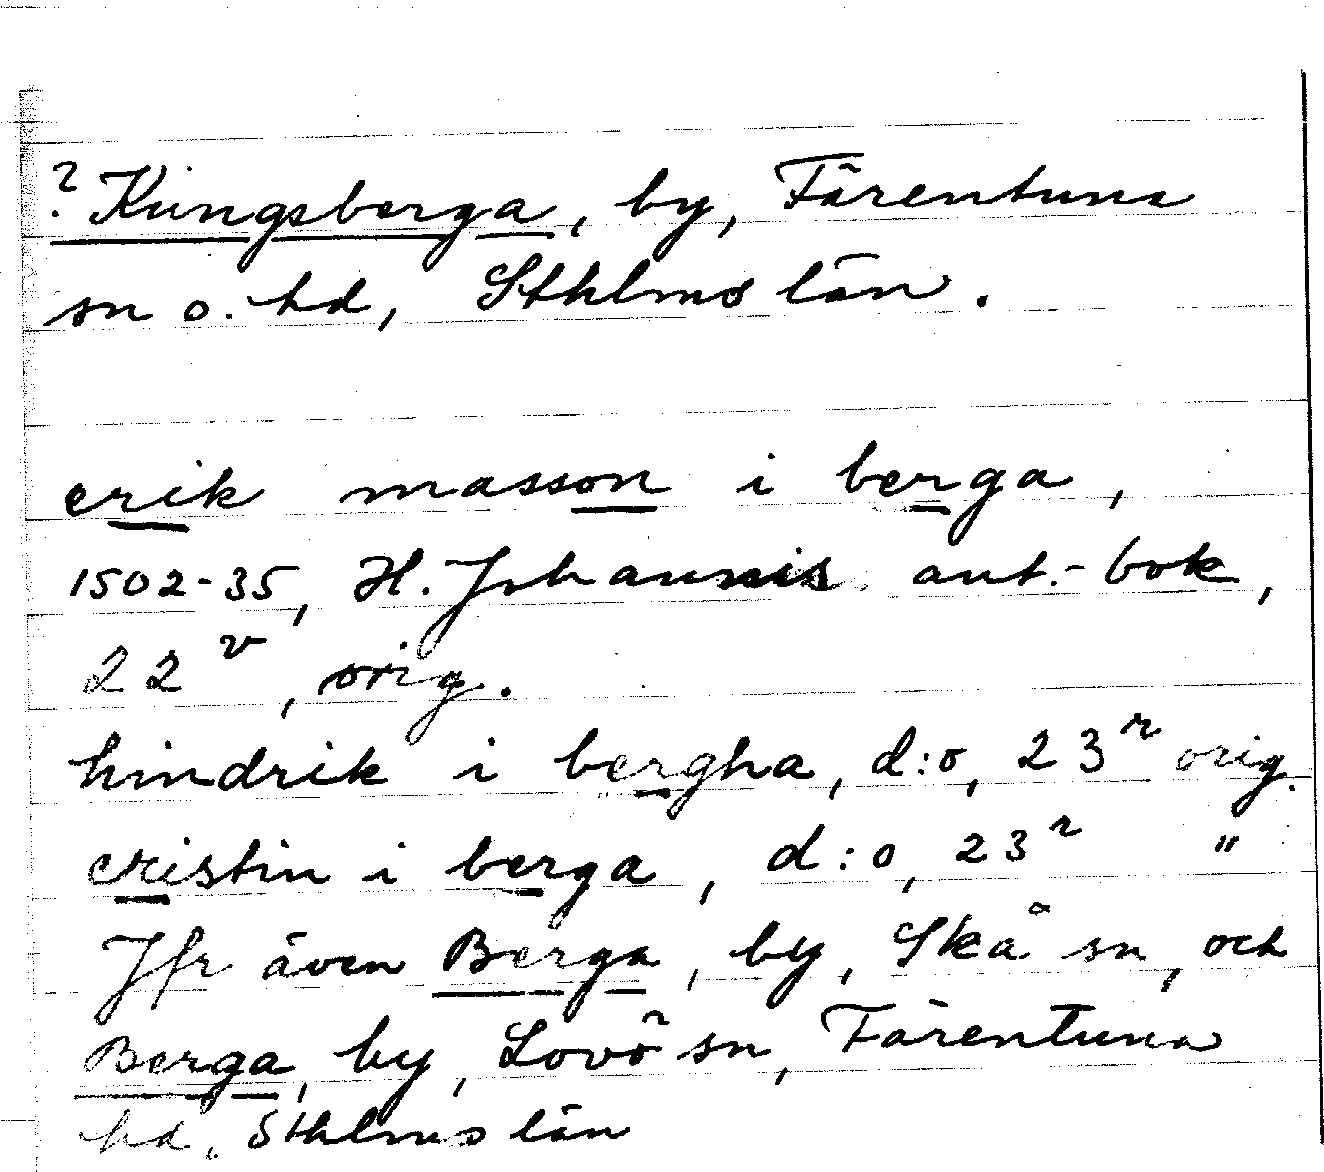 ? Kungsberga, by, Färentuna
sn o. hd, Sthlms län.
erik masson i berga,
1502-35, H. Johannis ant.-bok,
22v, orig.
hindrik i bergha, d:o, 23r orig.
cristin i berga, d:o, 23r "
Jfr även Berga, by, Skå sn, och
Berga, by, Lovö sn, Färentuna
hd, Sthlms län